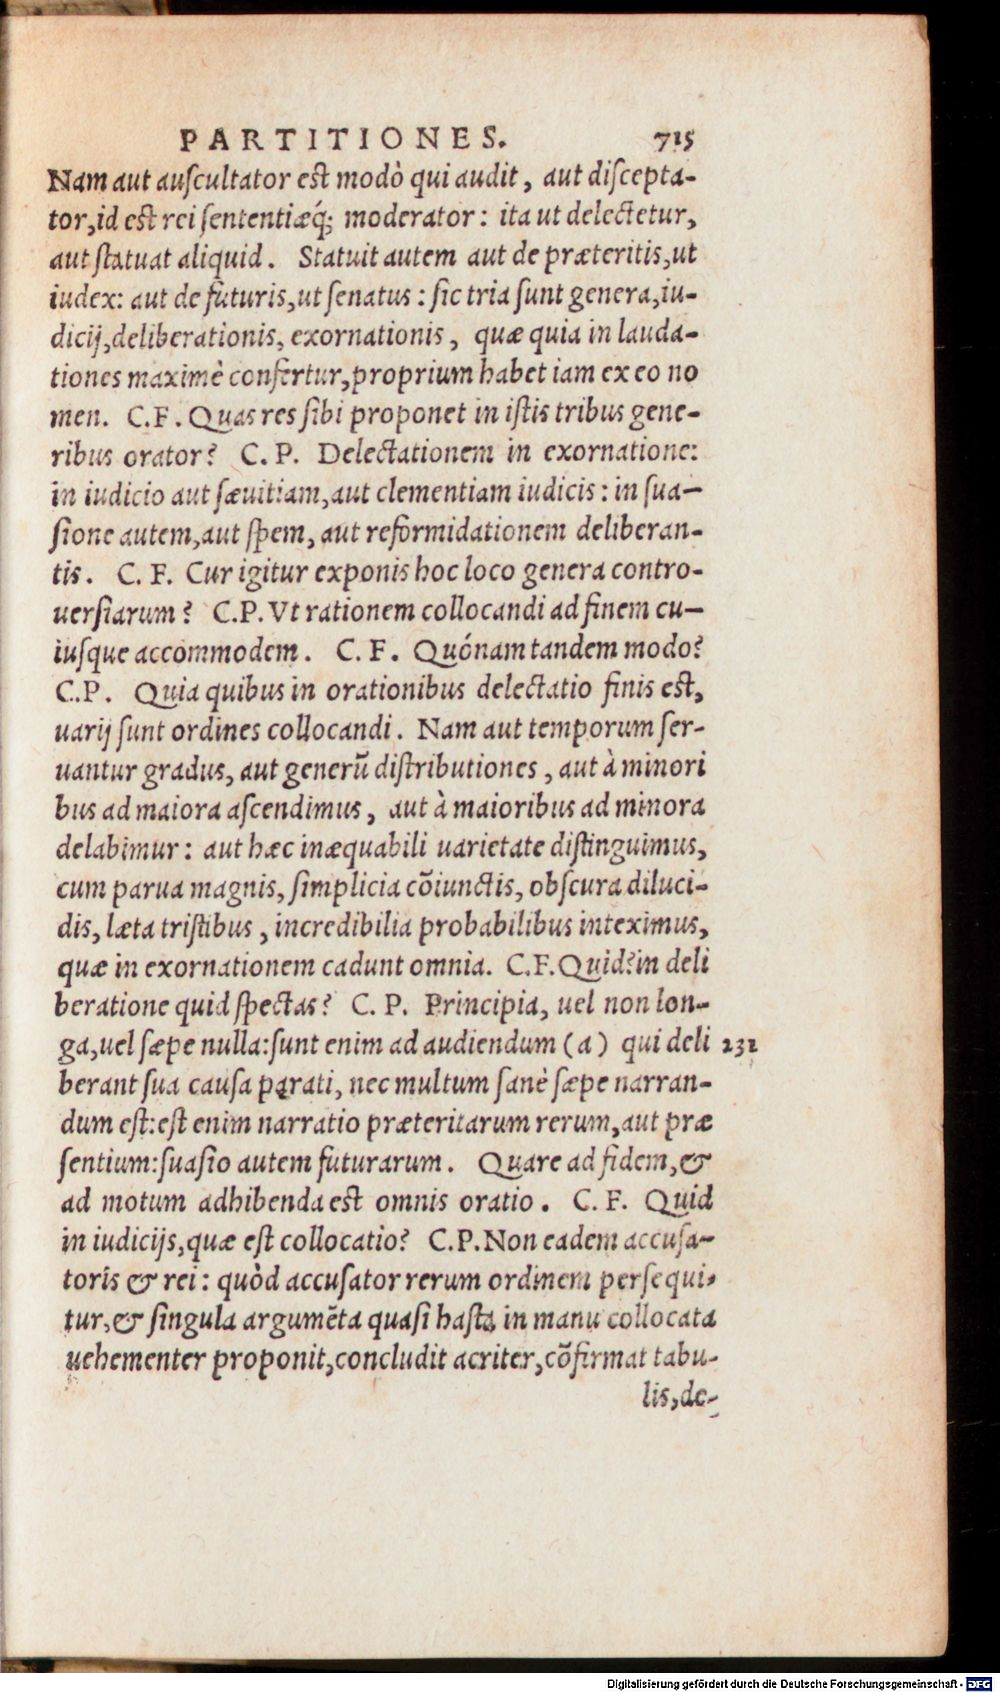 PARTITIONES. 715
Nam aut auscultator est modò qui audit, aut discepta-
tor, id est rei sententiæq́; moderator: ita ut delectetur,
aut statuat aliquid. Statuit autem aut de præteritis, ut
iudex: aut de futuris, ut senatus: sic tria sunt genera, iu-
dicij, deliberationis, exornationis, quæ quia in lauda-
tiones maximè confertur, proprium habet iam ex eo no
men. C.F. Quas res sibi proponet in istis tribus gene-
ribus orator? C.P. Delectationem in exornatione:
in iudicio aut sæuitiam, aut clementiam iudicis: in sua-
sione autem, aut spem, aut reformidationem deliberan-
tis. C.F. Cur igitur exponis hoc loco genera contro-
uersiarum? C.P. Vt rationem collocandi ad finem cu-
iusque accommodem. C.F. Quónam tandem modo?
C.P. Quia quibus in orationibus delectatio finis est,
uarij sunt ordines collocandi. Nam aut temporum ser-
uantur gradus, aut generũ distributiones, aut à minori
bus ad maiora ascendimus, aut à maioribus ad minora
delabimur: aut hæc inæquabili uarietate distinguimus,
cum parua magnis, simplicia cõiunctis, obscura diluci-
dis, læta tristibus, incredibilia probabilibus inteximus,
quæ in exornationem cadunt omnia. C.F. Quid? in deli
beratione quid spectas? C.P. Principia, uel non lon-
ga, uel sæpe nulla: sunt enim ad audiendum (a) qui deli 231
berant sua causa parati, nec multum sanè sæpe narran-
dum est: est enim narratio præteritarum rerum, aut præ
sentium: suasio autem futurarum. Quare ad fidem, &
ad motum adhibenda est omnis oratio. C.F. Quid
in iudicijs, quæ est collocatio? C.P. Non eadem accusa-
toris & rei: quòd accusator rerum ordinem persequi-
tur, & singula argumẽta quasi hasta in manu collocata
uehementer proponit, concludit acriter, cõfirmat tabu-
lis, de-
Digitalisierung gefördert durch die Deutsche Forschungsgemeinschaft - DFG